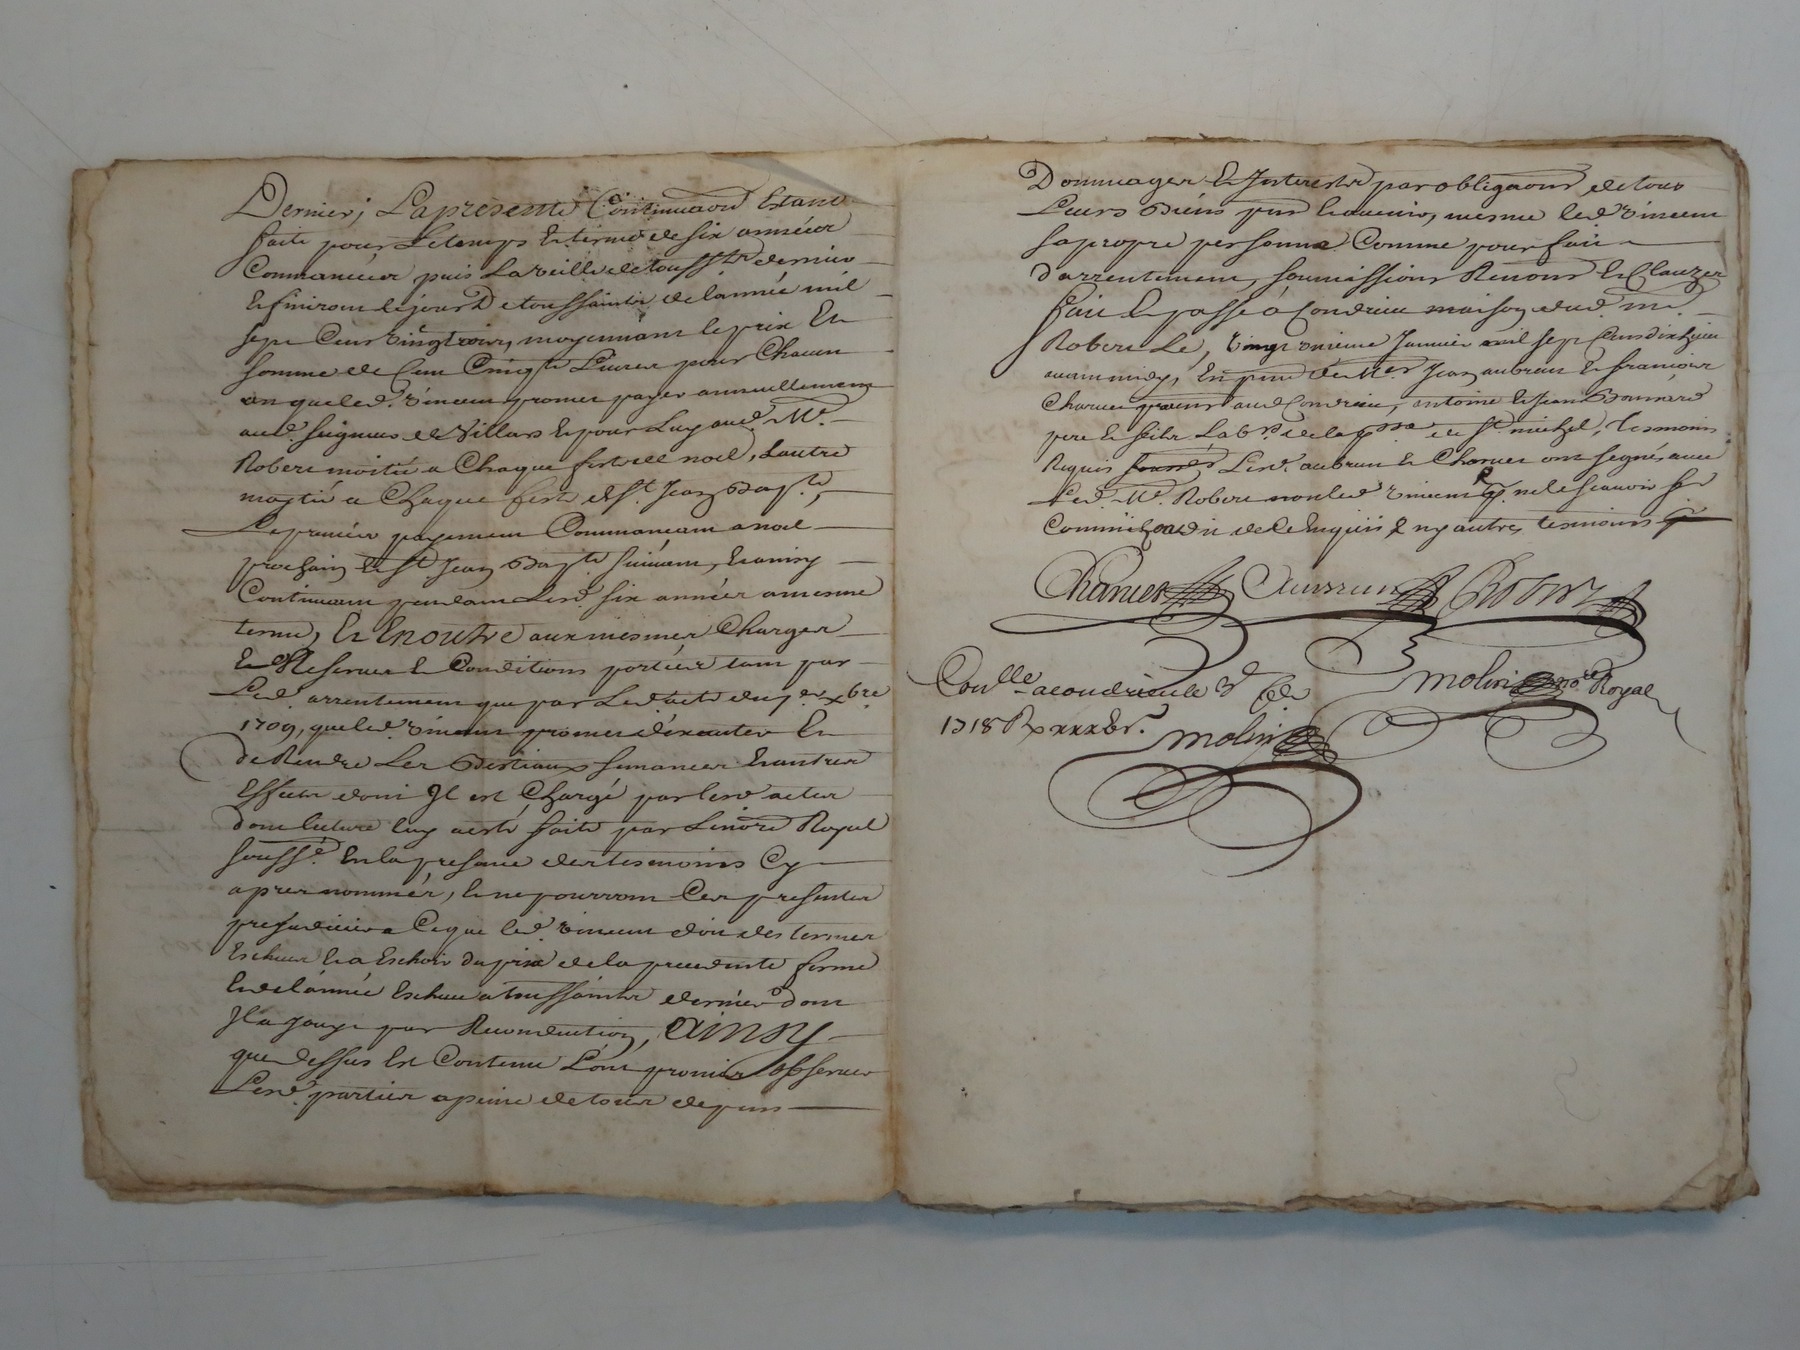 Dernier; La presente Continuaon Estant
faite pour Le temps Et terme de six années
Commancées puis La veille de toussts dernier
Et finiront le jour De toussaints de lannée mil
sept Cens vingt trois, moyennant le prix Et
somme de Cent Cinqte Livres pour Chacun
an que led. vincent promet payer annuellement
aud. seigneur de Villars Et pour Luy aud. Mr.
Robert moitié a Chaque feste de noel, Lautre
moytié a Chaque feste de St. Jean Bapte,
Le premier payement Commancant a noel
prochain Et St Jean Bapte suivant, Et ainsy
Continuant pendant Lesd. six années a mesme
terme, Et En outre aux mesmes Charges
Et Reserves Et Conditions portées tant par
Led. arrentement que par Led. acte du xbre
1709, que led. vincent promet dexecuter Et
de Rendre Les Bestiaux semances Et autres
Effects dont Il est Chargé par lesd. actes
dont lecture luy a esté faite par Le nore Royal
soussé. En la presance des tesmoins Cy
apres nommés, Et ne pourront Ces presentes
presudicier a Ce que led. vincent doit des termes
Escheus Et a Eschoir du prix de la precedente ferme
Et de lannée Escheue a toussaints dernier dont
Il a jouy par Reconduction, Ainsy
que dessus Est Contenu Lont promis observer
Lesd. parties a peine de tous depens
Dommages Et Interests par obligaons de tous
Leurs Biens pnts Et avenir, mesme led. vincent
sa propre personne Comme pour fait
darrentement, soumissions Renons Et Clauzes
fait Et passé à Condrieu maison dud. mr.
Robert Le, vingt unieme Janvier mil sept Cens dix huit
avant midy, En pnce de Mes Jean aubrun Et francois
Charvet praticns aud. Condrieu, antoine Et Jean
pere Et fils Labrs de la psse de St. michel, tesmoins
Requis Lesd. aubrun Et Charvet ont segnés avec
Led. Mr. Robert non led. vincent pr. ne le scavoir fer
Comme il a dit de ce Enquis & ny autres tesmoins
Charvet Aubrun Robert
Conlle a condrieu le 3
molin nore Royal
1718 R
molin